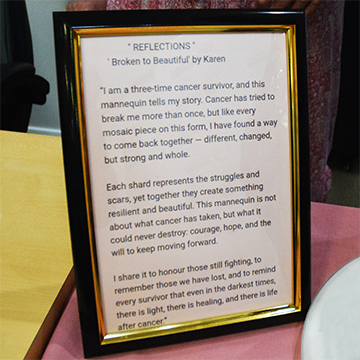 " REFLECTIONS "
' Broken to Beautiful' by Karen
"I am a three-time cancer survivor, and this
mannequin tells my story. Cancer has tried to
break me more than once, but like every
mosaic piece on this form, I have found a way
to come back together — different, changed,
but strong and whole.
Each shard represents the struggles and
scars, yet together they create something
resilient and beautiful. This mannequin is not
about what cancer has taken, but what it
could never destroy: courage, hope, and the
will to keep moving forward.
I share it to honour those still fighting, to
remember those we have lost, and to remind
every survivor that even in the darkest times,
there is light, there is healing, and there is life
after cancer."